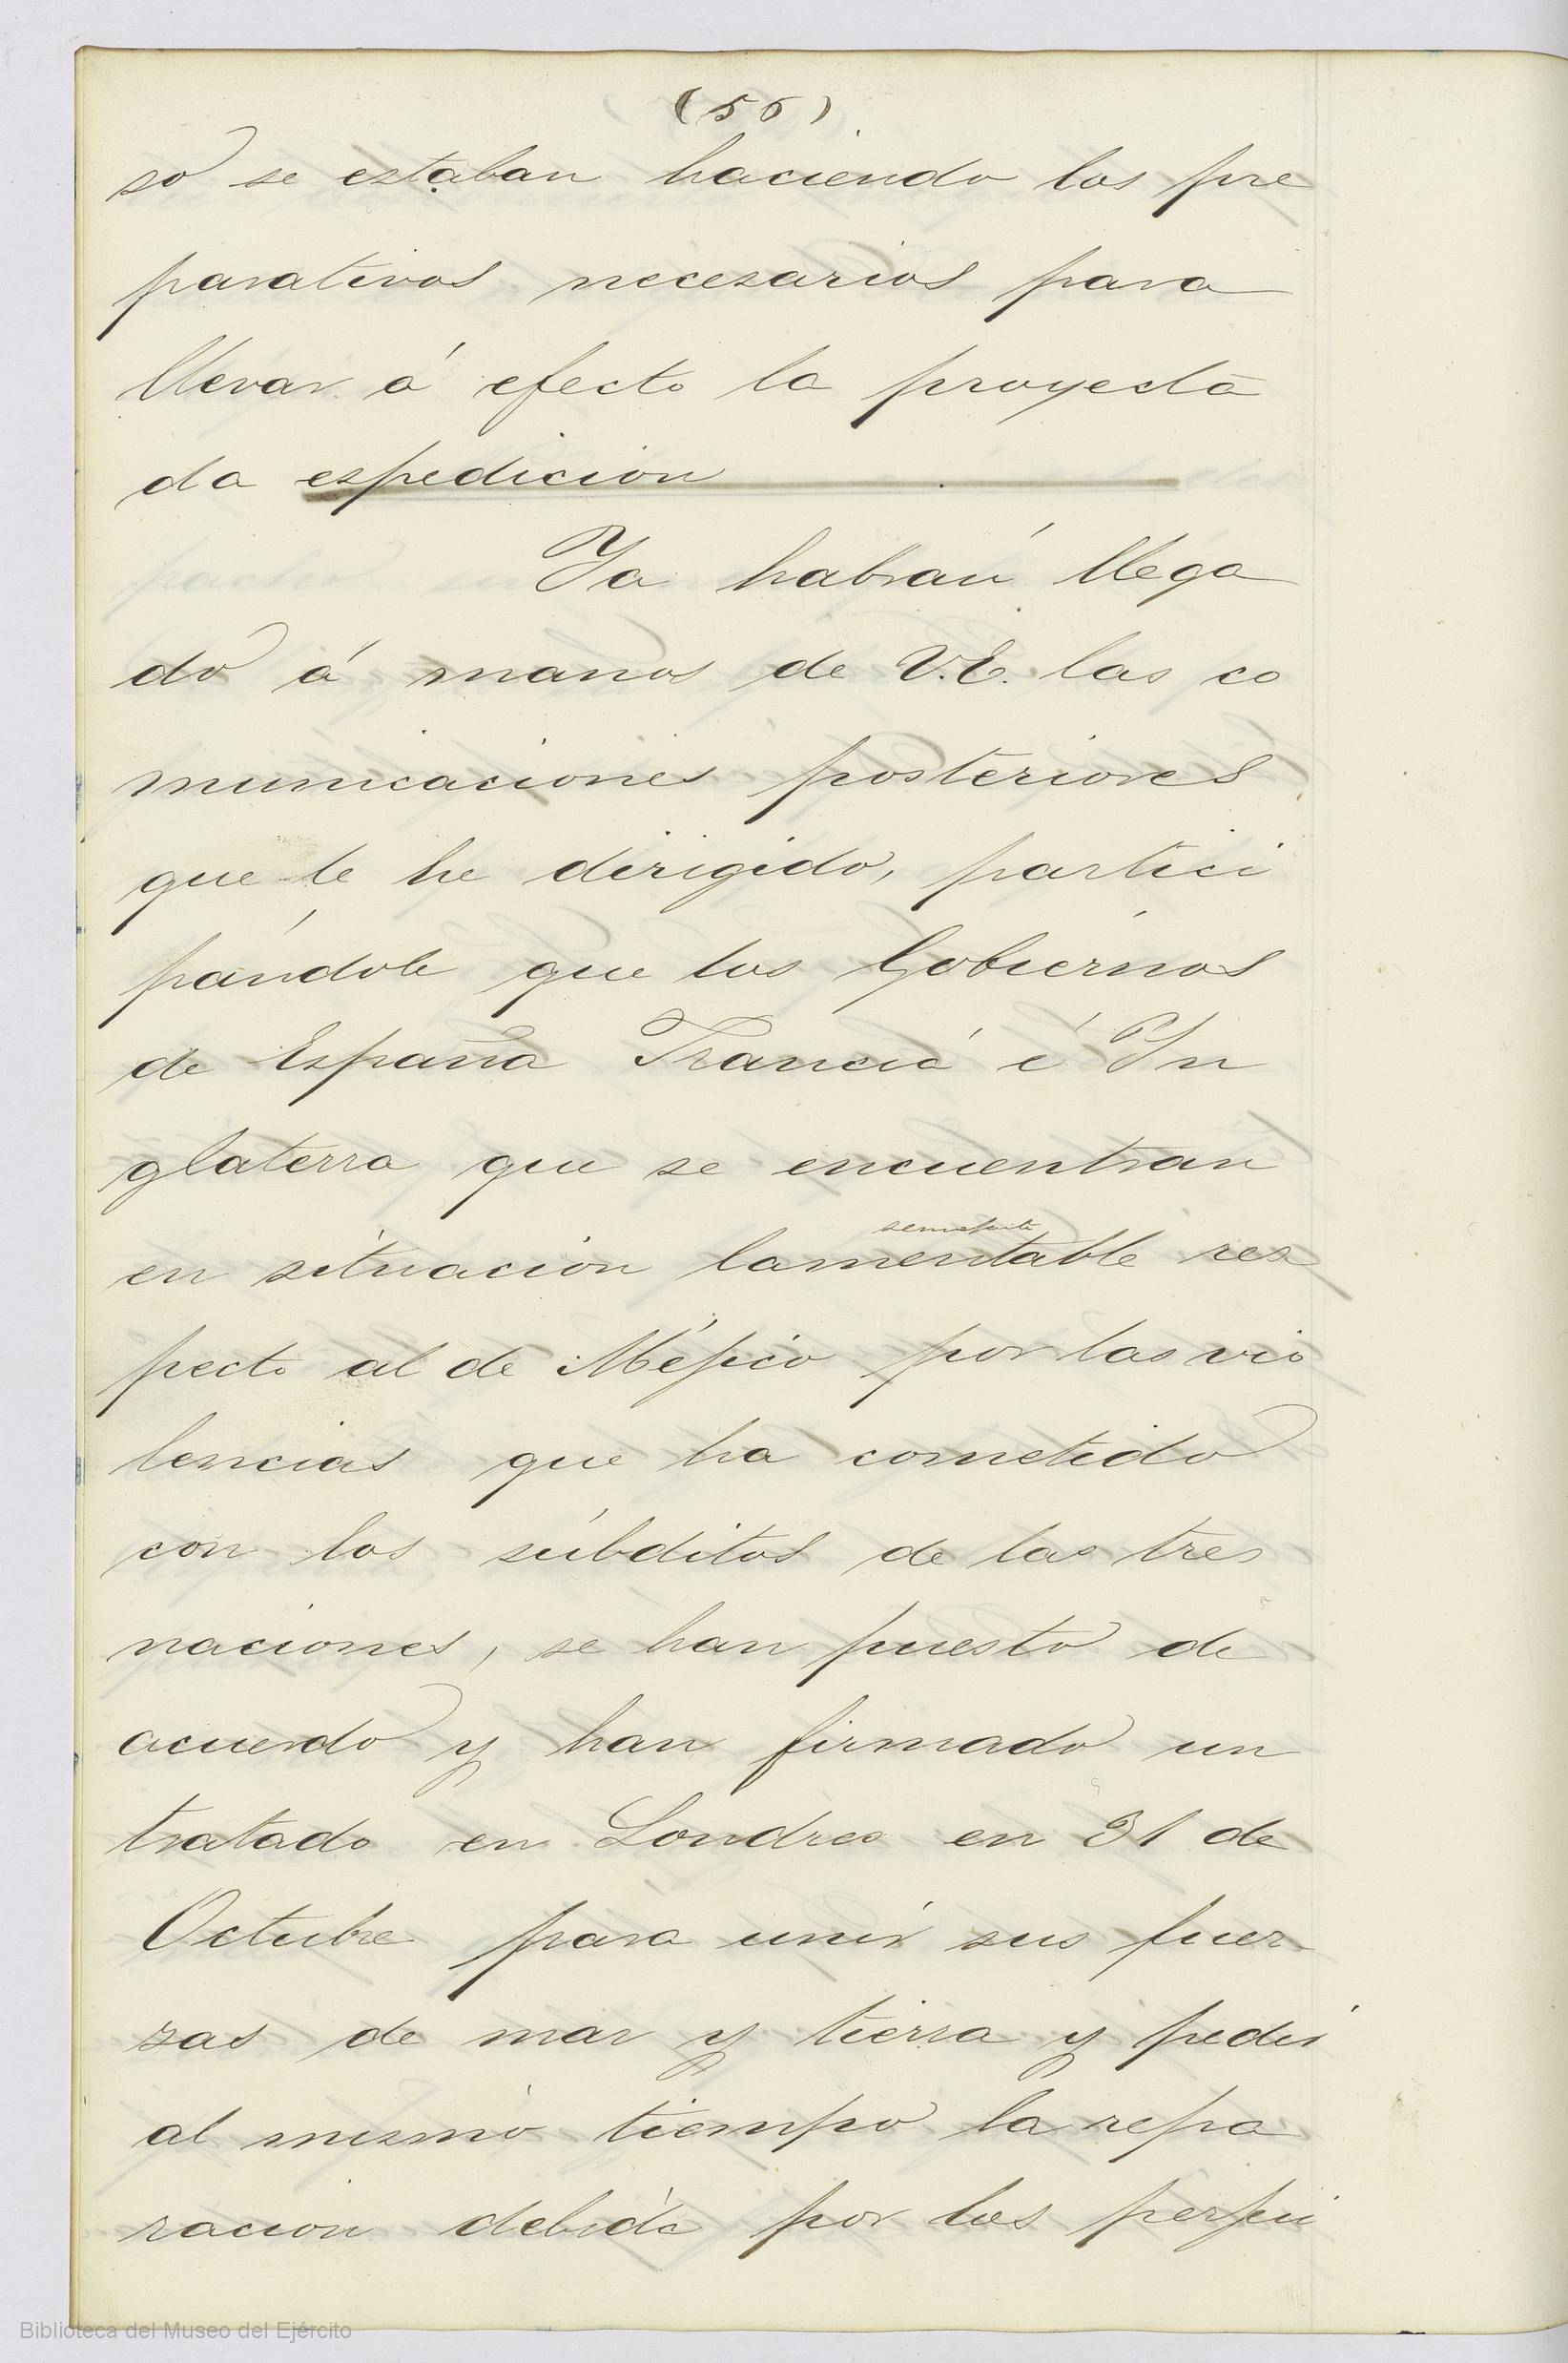 (56)
so se estaban haciendo los pre
parativos necesarios para
llevar á efecto la proyecta
da espedicion
Ya habrán llega
do á manos de V.E. las co
municaciones posteriores
que le he dirigido, partici
pándole que los Gobiernos
de España Francia é In
glaterra que se encuentran
semejante
en situacion lamentable res
pecto al de Méjico por las vio
lencias que ha cometido
con los súbditos de las tres
naciones, se han puesto de
acuerdo y han firmado un
tratado en Londres en 31 de
Octubre para unir sus fuer-
zas de mar y tierra y pedir
al mismo tiempo la repa
racion debida por los perjui
Biblioteca del Museo del Ejército